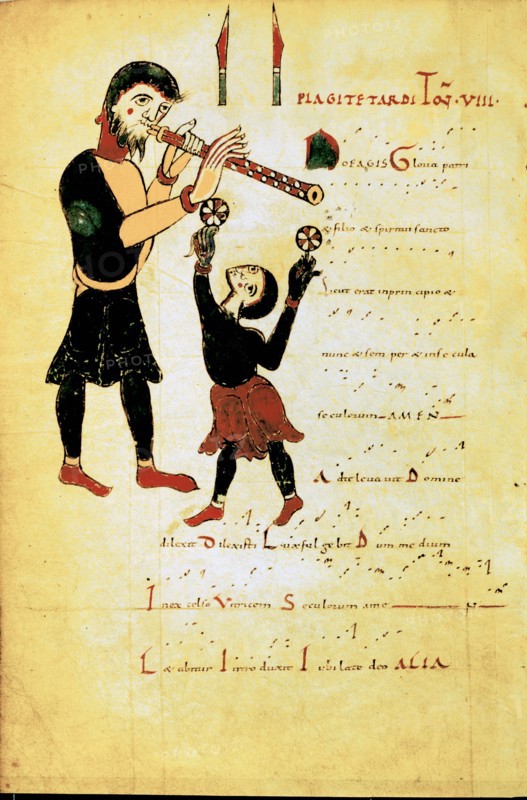 PLAGITETARDI TOÑ·VIII·
DOEAGIS Gloria patri
& filio & spiritui sancto
Sicut erat inprincipio &
nunc & sem per & inse cula
seculorum AMEN
Adte leva vit Domine
dilexit Dilexisti Lux ful ge bit Dum me dium
Inex celso Viricem Seculorum ame N
L& abitur Intro duxit Iubilate deo ALIA